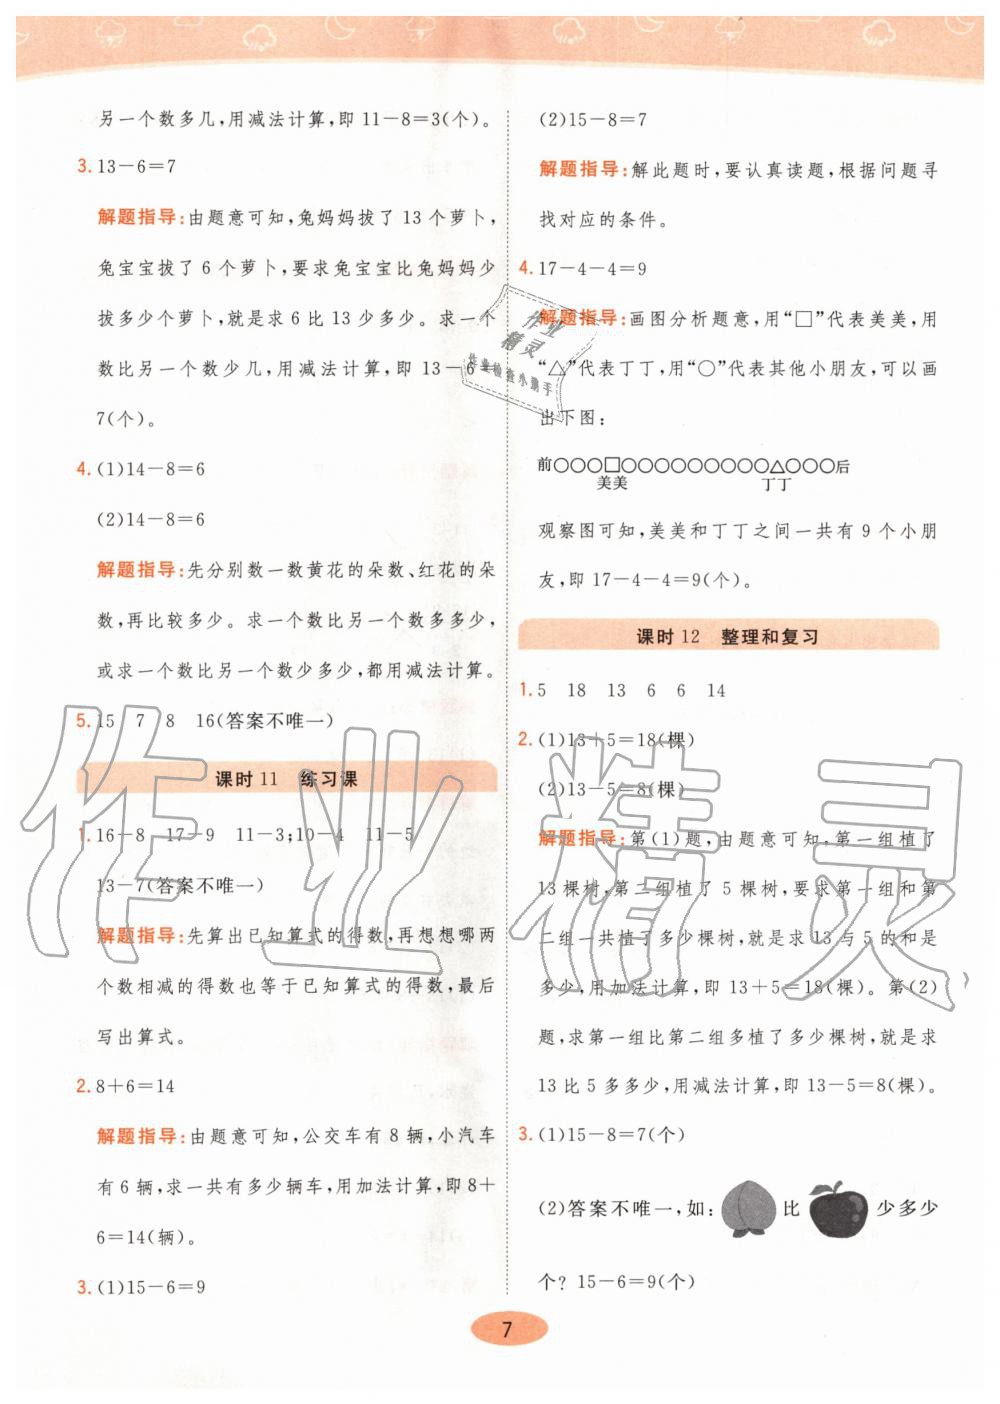 另一个数多几,用减法计算,即 11-8=3(个)。
3. 13-6=7
解题指导:由题意可知,兔妈妈拔了 13 个萝卜,
兔宝宝拔了 6 个萝卜,要求兔宝宝比兔妈妈少
拔多少个萝卜,就是求 6 比 13 少多少。求一个
数比另一个数少几,用减法计算,即 13-6
7(个)。
4. (1)14-8=6
(2)14-8=6
解题指导:先分别数一数黄花的朵数、红花的朵
数,再比较多少。求一个数比另一个数多多少,
或求一个数比另一个数少多少,都用减法计算。
5. 15 7 8 16(答案不唯一)
课时 11 练习课
1. 16-8 17-9 11-3;10-4 11-5
13-7(答案不唯一)
解题指导:先算出已知算式的得数,再想想哪两
个数相减的得数也等于已知算式的得数,最后
写出算式。
2. 8+6=14
解题指导:由题意可知,公交车有 8 辆,小汽车
有 6 辆,求一共有多少辆车,用加法计算,即 8+
6=14(辆)。
3. (1)15-6=9
(2)15-8=7
解题指导:解此题时,要认真读题,根据问题寻
找对应的条件。
4. 17-4-4=9
解题指导:画图分析题意,用“□”代表美美,用
“△”代表丁丁,用“○”代表其他小朋友,可以画
出下图:
前○○○□○○○○○○○○○△○○○后
美美 丁丁
观察图可知,美美和丁丁之间一共有 9 个小朋
友,即 17-4-4=9(个)。
课时 12 整理和复习
1. 5 18 13 6 6 14
2. (1)13+5=18(棵)
(2)13-5=8(棵)
解题指导:第(1)题,由题意可知,第一组植了
13 棵树,第二组植了 5 棵树,要求第一组和第
二组一共植了多少棵树,就是求 13 与 5 的和是
多少,用加法计算,即 13+5=18(棵)。第(2)
题,求第一组比第二组多植了多少棵树,就是求
13 比 5 多多少,用减法计算,即 13-5=8(棵)。
3. (1)15-8=7(个)
(2)答案不唯一,如: 比 少多少
个? 15-6=9(个)
7
作业
精灵
作业检查小助手
作业精灵